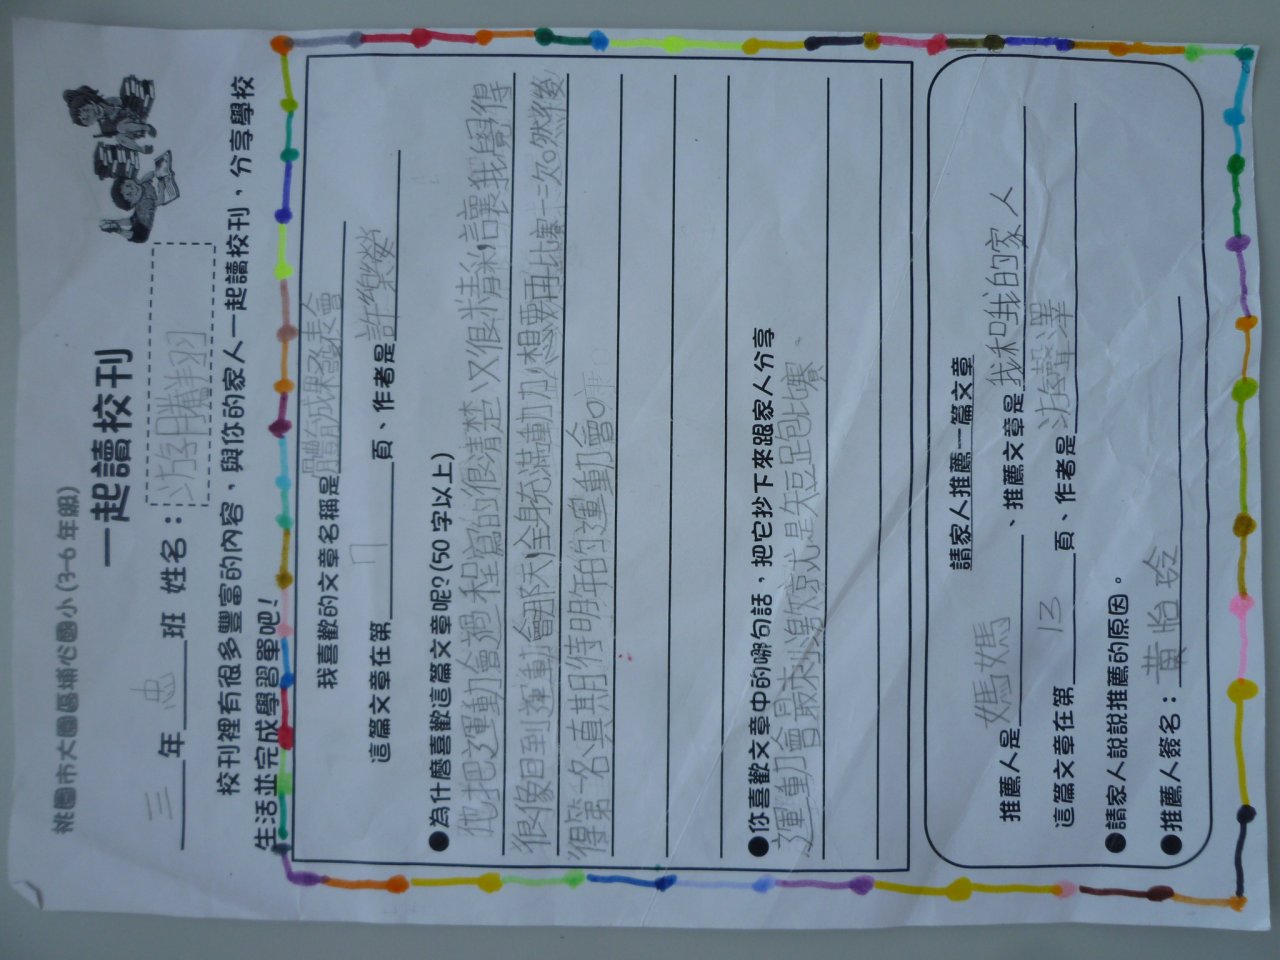 桃園市大園區埔心國小(3-6年級)
一起讀校刊
三年忠班 姓名：游騰羽
校刊裡有很多豐富的內容，與你的家人一起讀校刊，分享學校
生活並完成學習單吧！
我喜歡的文章名稱是體育成果發表會
這篇文章在第 7 頁、作者是許樂榮
●為什麼喜歡這篇文章呢?(50字以上)
他把運動會過程寫的很清楚又很精彩,讓我覺得
很像回到運動會那天,全身充滿動力,想要再比賽一次。然後
得第一名,真期待明年的運動會。
●你喜歡文章中的哪句話，把它抄下來跟家人分享
運動會最刺激的就是短跑比賽。
請家人推薦一篇文章
推薦人是媽媽、推薦文章是我和我的家人
這篇文章在第 13 頁、作者是游馨澤
●請家人說說推薦的原因。
●推薦人簽名：黃怡玲